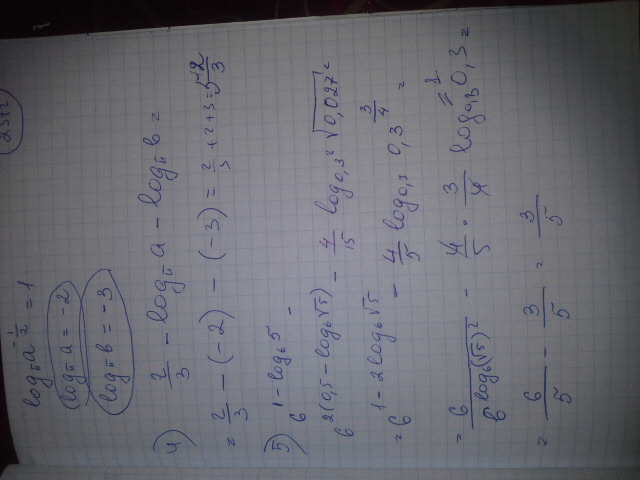 log_π a^{-1/2} = 1
log_π a = -2
log_π b = -3
4) 2/3 - log_π a - log_π b =
= 2/3 - (-2) - (-3) = 2/3 + 2 + 3 = 5 2/3
5) 6^{1 - log_6 5} -
6^{2(0,5 - log_6 √5)} - 4/15 log_{0,3²} √0,027 =
= 6^{1 - 2 log_6 √5} - 4/5 log_{0,3} 0,3^{3/4} =
= 6/6^{log_6 (√5)²} - 4/5 · 3/4 log_{0,3} 0,3 = 1 =
= 6/5 - 3/5 = 3/5